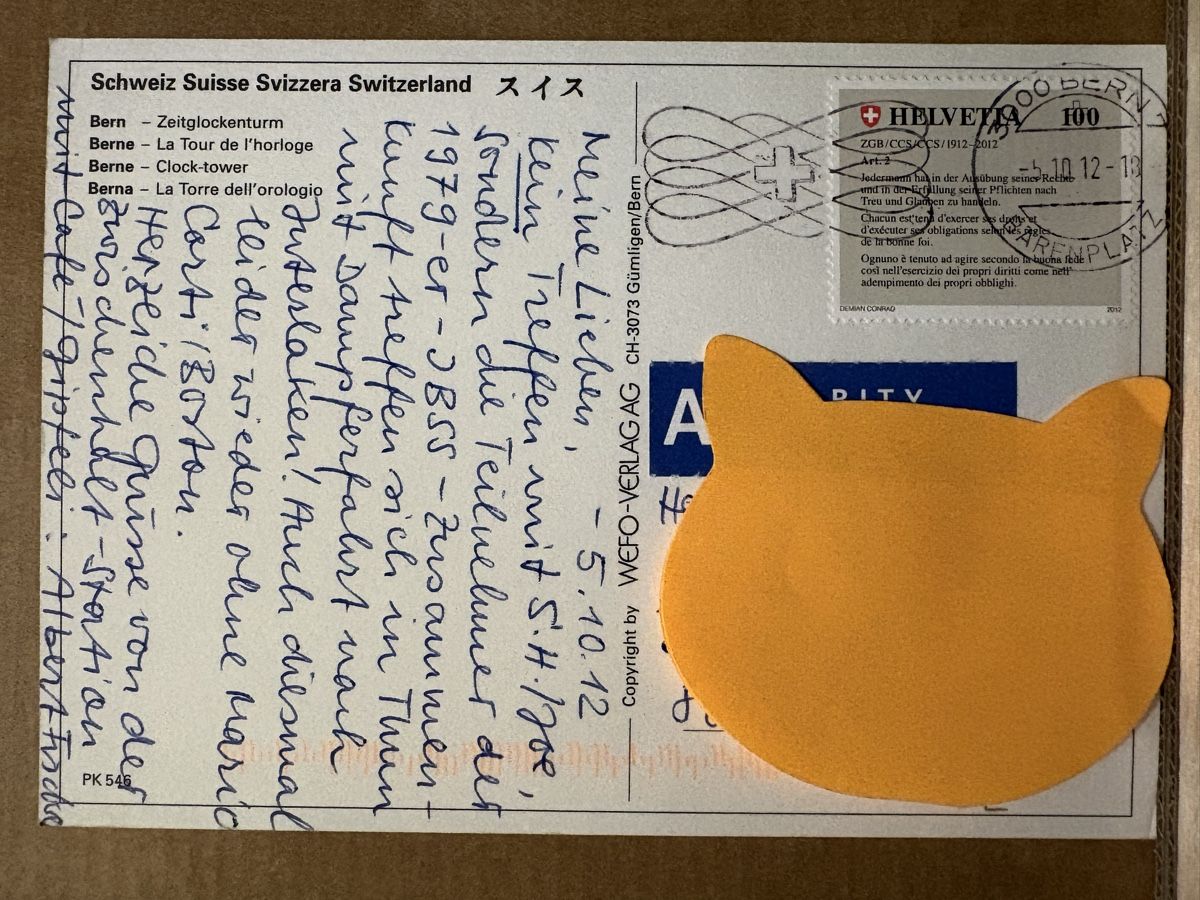 Schweiz Suisse Svizzera Switzerland スイス
Bern – Zeitglockenturm
Berne – La Tour de l'horloge
Berne – Clock-tower
Berna – La Torre dell'orologio
Meine Lieben, - 5.10.12
kein Treffen mit S.H./Joe,
sondern die Teilnehmer der
1979-er-JBSS-Zusammen-
kunft treffen sich in Thun
mit Dampferfahrt nach
Interlaken! Auch diesmal
leider wieder ohne Mario
Corti/Boston.
Herzliche Grüsse von der
Zwischenhalt-Station
mit Café-/gipfeli: Albert
PK 546
Copyright by WEFO-VERLAG AG CH-3073 Gümligen/Bern
HELVETIA 100
ZGB/CCS/CCS/1912–2012
Art. 2
Jedermann hat in der Ausübung seiner Rechte
und in der Erfüllung seiner Pflichten nach
Treu und Glauben zu handeln.
Chacun est tenu d'exercer ses droits et
d'exécuter ses obligations selon les règles
de la bonne foi.
Ognuno è tenuto ad agire secondo la buona fede
così nell'esercizio dei propri diritti come nell'
adempimento dei propri obblighi.
DEMIAN CONRAD 2012
3000 BERN 7
-5.10.12-18
BÄRENPLATZ
A
RITY